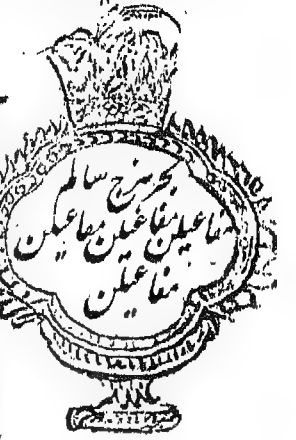 بحر هزج سالم
مفاعیلن مفاعیلن مفاعیلن
مفاعیلن